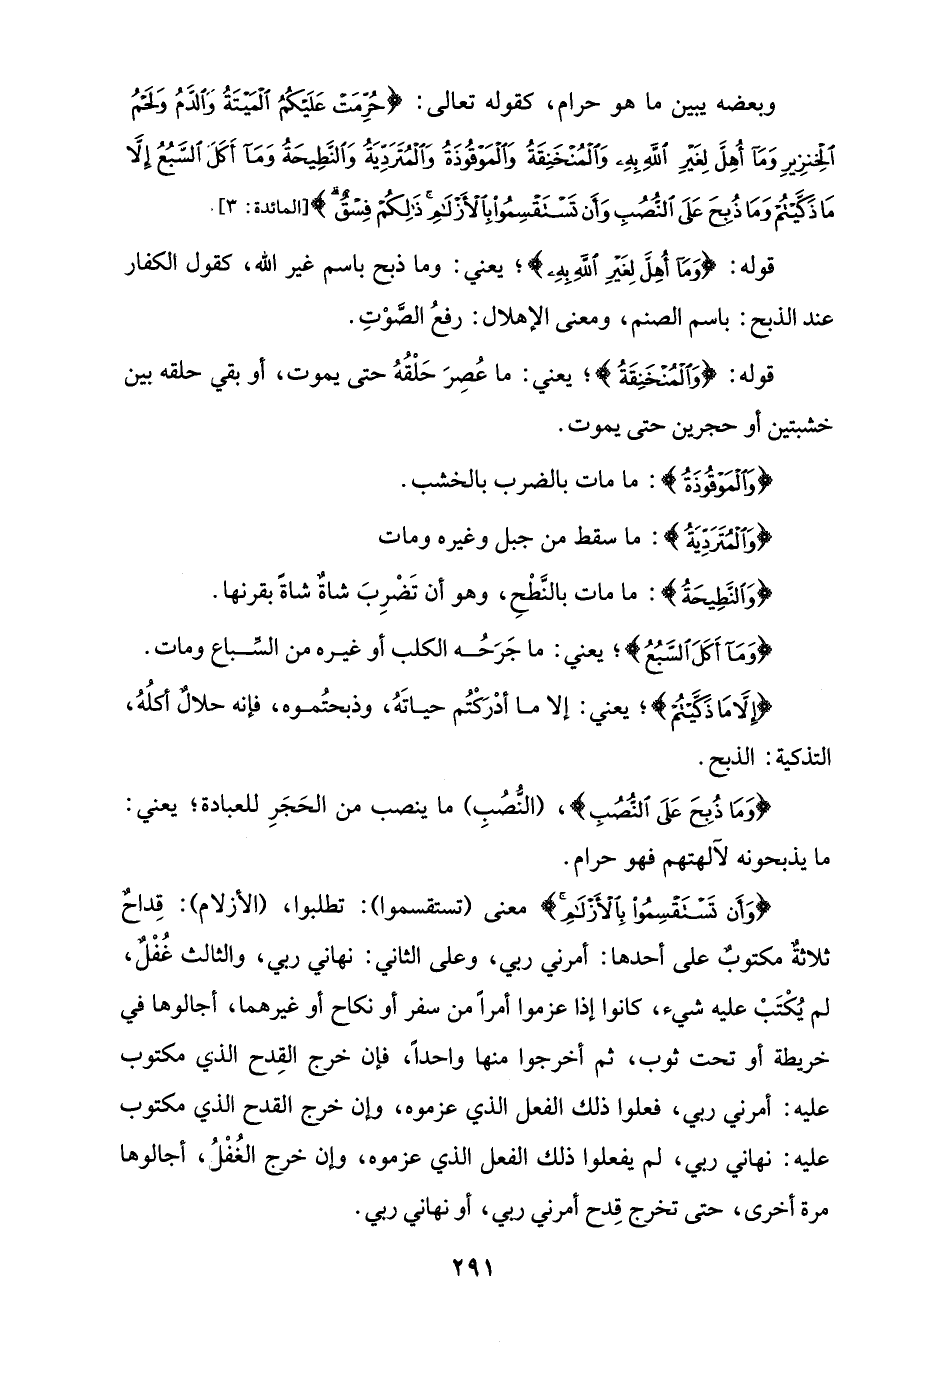 وبعضه يبين ما هو حرام، كقوله تعالى: ﴿حُرِّمَتْ عَلَيْكُمُ ٱلْمَيْتَةُ وَٱلدَّمُ وَلَحْمُ
ٱلْخِنزِيرِ وَمَآ أُهِلَّ لِغَيْرِ ٱللَّهِ بِهِۦ وَٱلْمُنْخَنِقَةُ وَٱلْمَوْقُوذَةُ وَٱلْمُتَرَدِّيَةُ وَٱلنَّطِيحَةُ وَمَآ أَكَلَ ٱلسَّبُعُ إِلَّا
مَا ذَكَّيْتُمْ وَمَا ذُبِحَ عَلَى ٱلنُّصُبِ وَأَن تَسْتَقْسِمُوا۟ بِٱلْأَزْلَٰمِ ۚ ذَٰلِكُمْ فِسْقٌ ۗ﴾ [المائدة: ٣].
قوله: ﴿وَمَآ أُهِلَّ لِغَيْرِ ٱللَّهِ بِهِۦ﴾؛ يعني: وما ذبح باسم غير الله، كقول الكفار
عند الذبح: باسم الصنم، ومعنى الإهلال: رفعُ الصَّوْتِ.
قوله: ﴿وَٱلْمُنْخَنِقَةُ﴾؛ يعني: ما عُصِرَ حَلْقُهُ حتى يموت، أو بقي حلقه بين
خشبتين أو حجرين حتى يموت.
﴿وَٱلْمَوْقُوذَةُ﴾: ما مات بالضرب بالخشب.
﴿وَٱلْمُتَرَدِّيَةُ﴾: ما سقط من جبل وغيره ومات
﴿وَٱلنَّطِيحَةُ﴾: ما مات بالنَّطْحِ، وهو أن تَضْرِبَ شاةٌ شاةً بقرنها.
﴿وَمَآ أَكَلَ ٱلسَّبُعُ﴾؛ يعني: ما جَرَحُـه الكلب أو غيره من السِّباع ومات.
﴿إِلَّا مَا ذَكَّيْتُمْ﴾؛ يعني: إلا ما أدْرَكْتُم حياتَهُ، وذبحتُموه، فإنه حلالٌ أكلُهُ،
التذكية: الذبح.
﴿وَمَا ذُبِحَ عَلَى ٱلنُّصُبِ﴾، (النُّصُبِ) ما ينصب من الحَجَرِ للعبادة؛ يعني:
ما يذبحونه لآلهتهم فهو حرام.
﴿وَأَن تَسْتَقْسِمُوا۟ بِٱلْأَزْلَٰمِ ۚ﴾ معنى (تستقسموا): تطلبوا، (الأزلام): قِداحٌ
ثلاثةٌ مكتوبٌ على أحدها: أمرني ربي، وعلى الثاني: نهاني ربي، والثالث غُفْلٌ،
لم يُكْتَبْ عليه شيء، كانوا إذا عزموا أمراً من سفر أو نكاح أو غيرهما، أجالوها في
خريطة أو تحت ثوب، ثم أخرجوا منها واحداً، فإن خرج القِدح الذي مكتوب
عليه: أمرني ربي، فعلوا ذلك الفعل الذي عزموه، وإن خرج القدح الذي مكتوب
عليه: نهاني ربي، لم يفعلوا ذلك الفعل الذي عزموه، وإن خرج الغُفْلُ، أجالوها
مرة أخرى، حتى تخرج قِدح أمرني ربي، أو نهاني ربي.
٢٩١